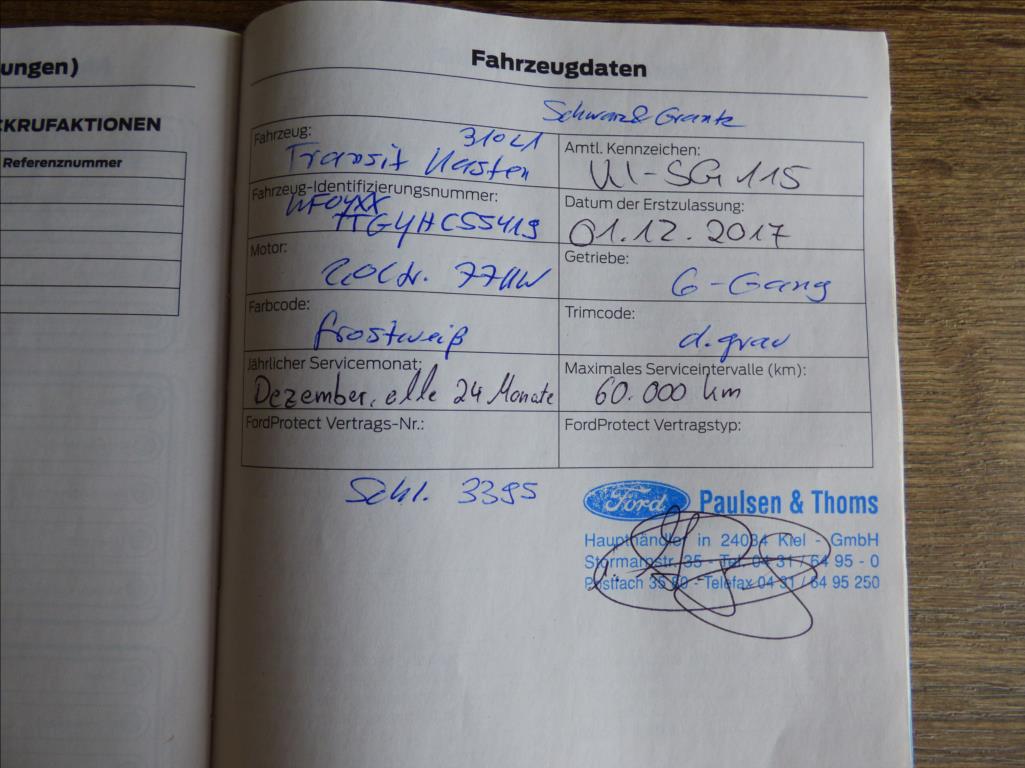 ungen)
CKRUFAKTIONEN
Referenznummer
Fahrzeugdaten
Schwarz & Grantz
Fahrzeug:
310 L1
Transit Kasten
Amtl. Kennzeichen:
KI-SG 115
Fahrzeug-Identifizierungsnummer:
WF0YXX
TTGYHC55419
Datum der Erstzulassung:
01.12.2017
Motor:
2.0 Ltr. 77KW
Getriebe:
6-Gang
Farbcode:
frostweiß
Trimcode:
d.grau
Jährlicher Servicemonat:
Dezember, alle 24 Monate
Maximales Serviceintervalle (km):
60.000 km
FordProtect Vertrags-Nr.:
FordProtect Vertragstyp:
Schl. 3395
Ford Paulsen & Thoms
Haupthändler in 24034 Kiel - GmbH
Stormarnstr. 35 - Tel. 04 31 / 64 95 - 0
Postfach 35 - Telefax 04 31 / 64 95 250